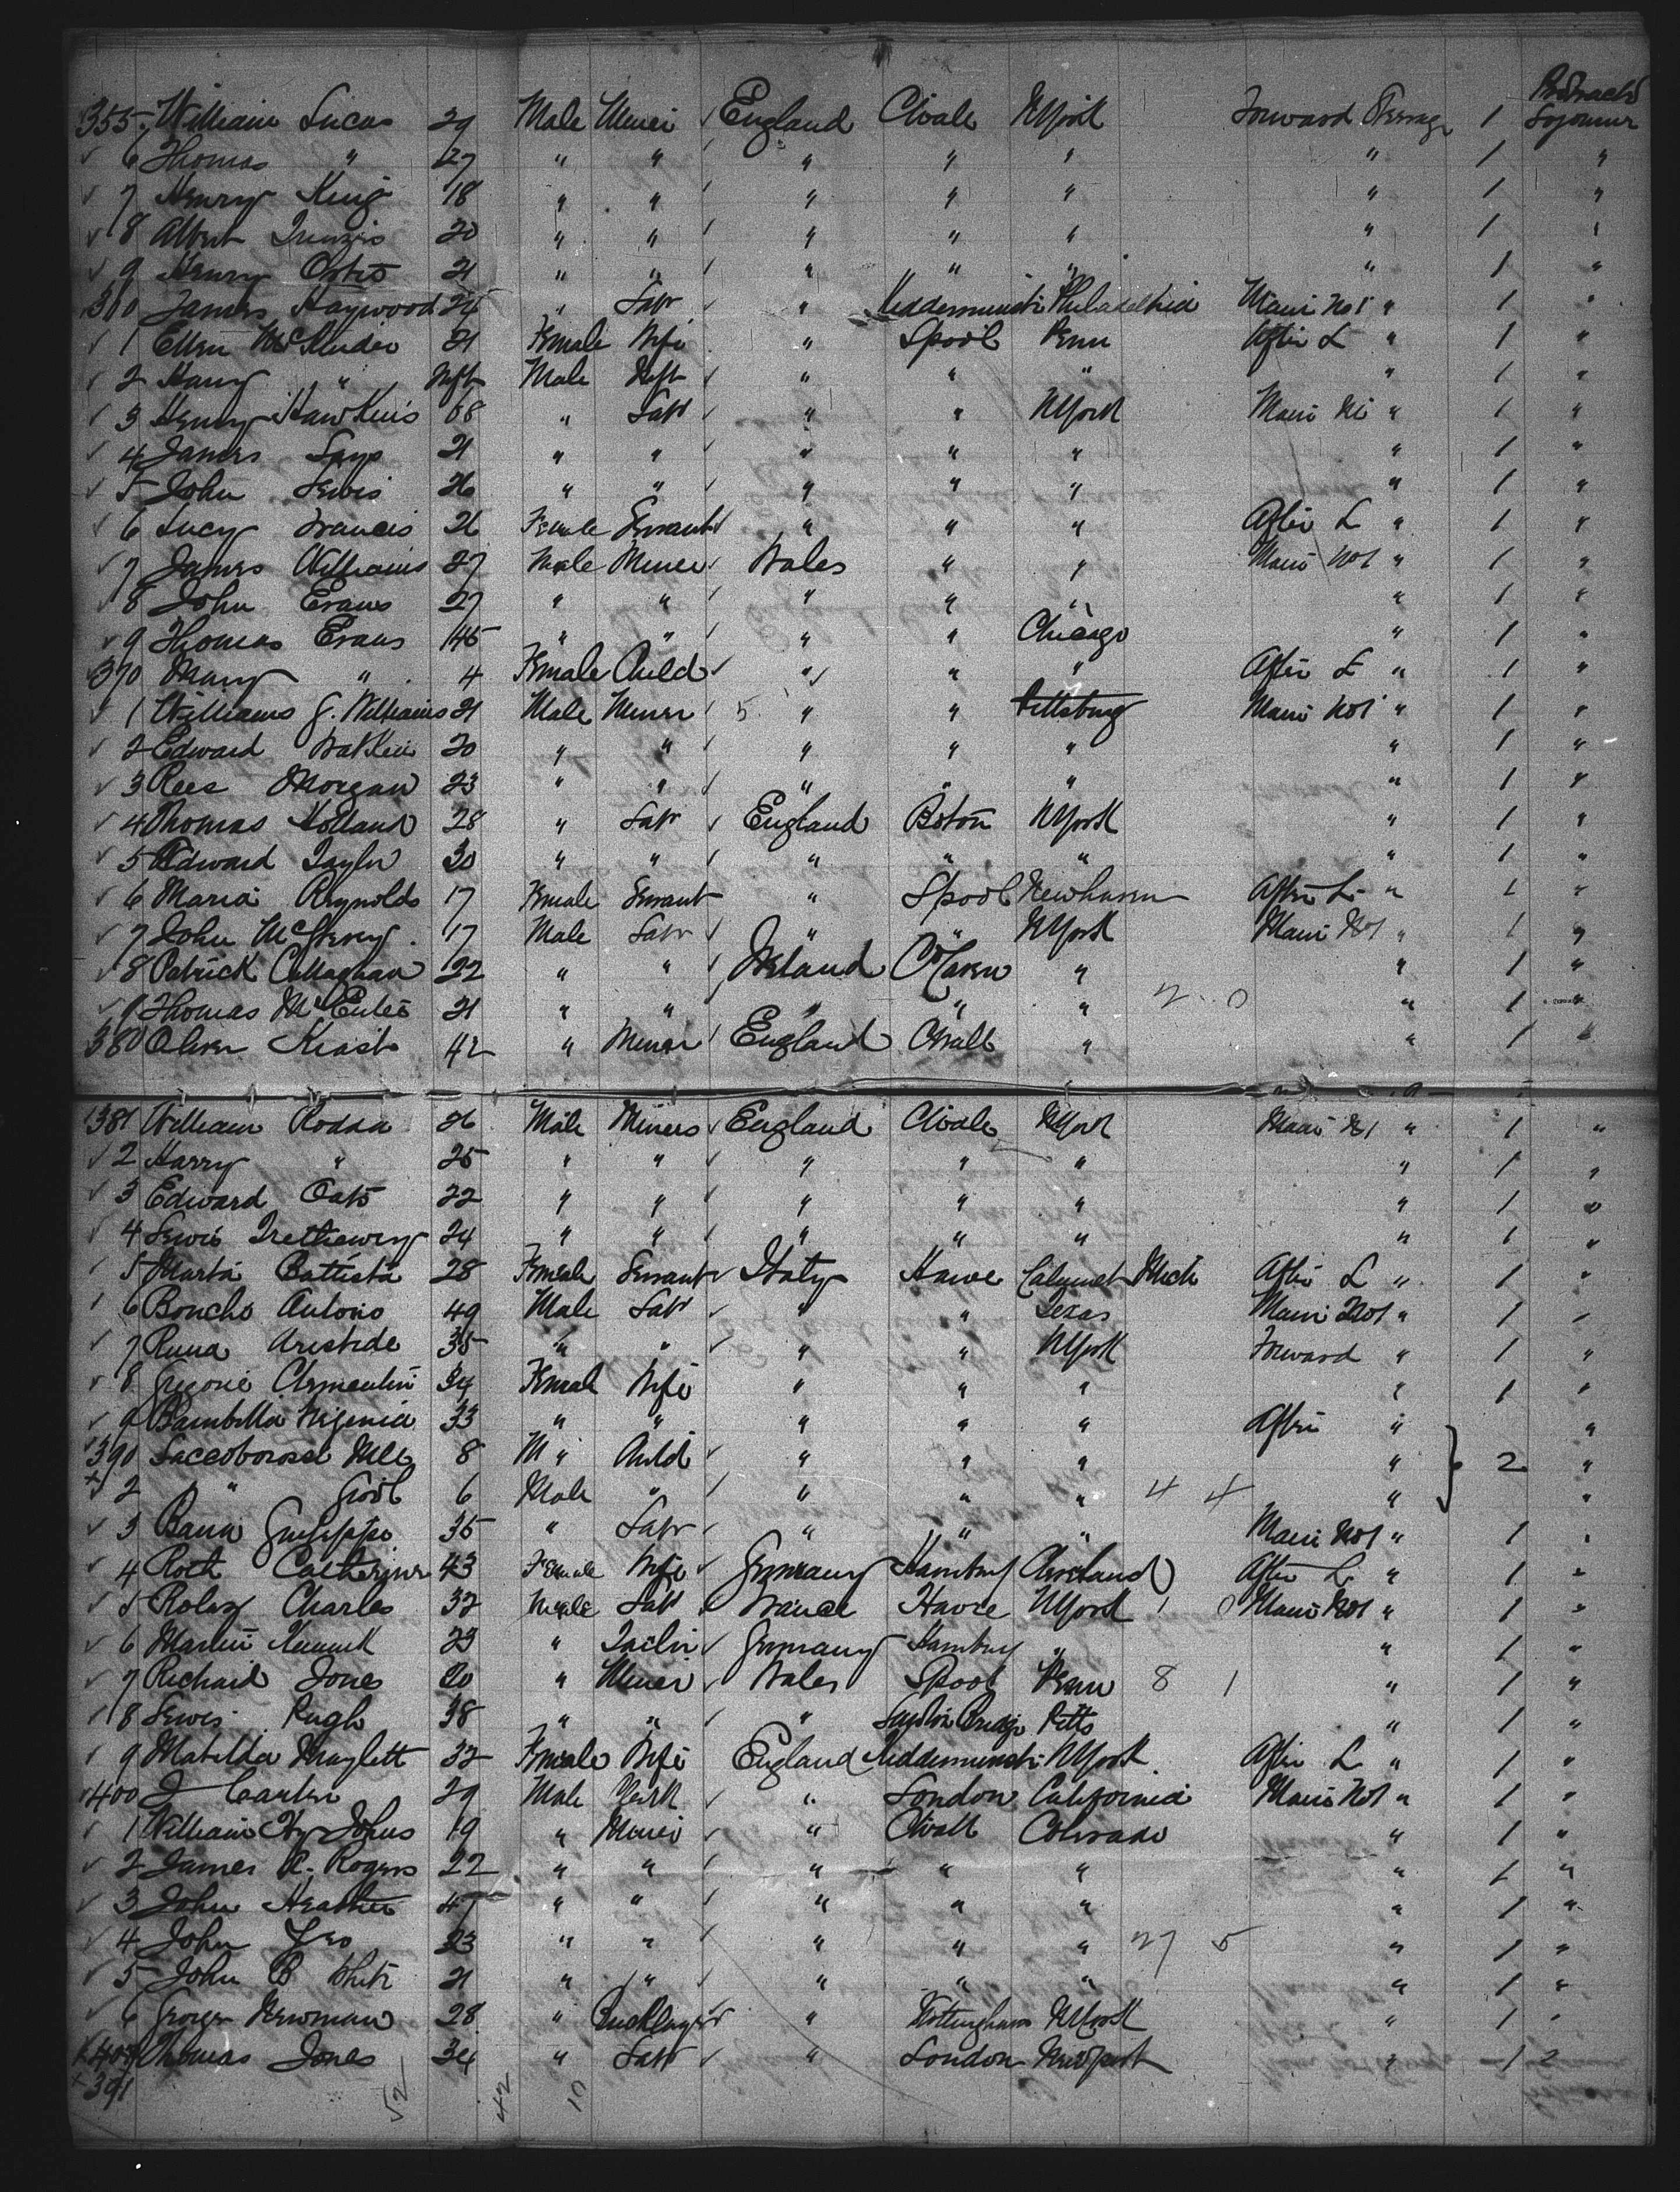 Protracted
355 William Lucas 29 Male Miner England Cwale NYork Forward Steerage 1 Sojourner
6 Thomas " 27 " " " " " " 1 "
7 Henry King 18 " " " " " " 1 "
8 Albert 20 " " " " " " 1 "
9 Henry 21 " " " " " " 1 "
360 James Haywood 25 " Labr " Kidderminster Philadelphia Main No 1 " 1 "
1 Ellen 21 Female Wife " Lpool Penn After L " 1 "
2 Harry " Inft Male Inft " " " " 1 "
3 Henry Hawkins 68 " Labr " " NYork Main No 1 " 1 "
4 James 21 " " " " " " 1 "
5 John Lewis 26 " " " " " " 1 "
6 Lucy Francis 26 Female Servant " " " After L " 1 "
7 James Williams 27 Male Miner Wales " " Main No 1 " 1 "
8 John Evans 27 " " " " " " 1 "
9 Thomas Evans 45 " " " " Chicago " 1 "
370 Mary " 4 Female Child " " " After L " 1 "
1 Williams J. Williams 21 Male Miner 5 " " Pittsburg Main No 1 " 1 "
2 Edward Watkin 20 " " " " " " 1 "
3 Rees Morgan 23 " " " " " " 1 "
4 Thomas Holland 28 " Labr England Boston NYork " 1 "
5 Edward Taylor 30 " " " " " " 1 "
6 Maria Reynolds 17 Female Servant " Lpool Newhaven After L " 1 "
7 John 17 Male Labr " " NYork Main No 1 " 1 "
8 Patrick Callaghan 22 " " Ireland " " 1 "
9 Thomas 21 " " " " " 2 0 " 1 "
380 Oliver Keast 42 " Miner England Cwall " " 1 "
381 William Rodda 26 Male Miners England Cwale NYork Main No 1 " 1 "
2 Harry " 25 " " " " " " 1 "
3 Edward Oats 22 " " " " " " 1 "
4 Lewis Trethewey 24 " " " " " " 1 "
5 Marta Battista 28 Female Servant Italy Havre Calumet Mich After L " 1 "
6 Boncho Antonio 49 Male Labr " " Texas Main No 1 " 1 "
7 Runa Aristide 35 " " " " NYork Forward " 1 "
8 Clementin 34 Female Wife " " " " 1 "
9 33 " " " " " After " "
390 8 " Child " " " " 2 "
2 " 6 Male " " " " 4 4 " "
3 Giuseppe 35 " Labr " " " Main No 1 " 1 "
4 Roth Catherine 43 Female Wife Germany Hamburg Cleveland After L " 1 "
5 Charles 32 Male Labr France Havre NYork 1 0 Main No 1 " 1 "
6 Martin 23 " Tailor Germany Hamburg " " 1 "
7 Richard Jones 20 " Miner Wales Lpool Penn 8 1 " 1 "
8 Lewis Pugh 38 " " " Pitts " 1 "
9 Matilda 32 Female Wife England Kidderminster NYork After L " 1 "
400 J Carter 29 Male Clerk " London California Main No 1 " 1 "
1 William Hy Johns 19 " Miner " Cwall Colorado " 1 "
2 James R. Rogers 22 " " " " " " 1 "
3 John Heather 47 " " " " " " 1 "
4 John Geo 23 " " " " " 27 5 " 1 "
5 John B White 21 " " " " " " 1 "
6 George Newman 28 " Bricklayer " Nottingham NYork " 1 "
407 Thomas Jones 34 " Labr " London Newport " 1 2
391
52 42 10